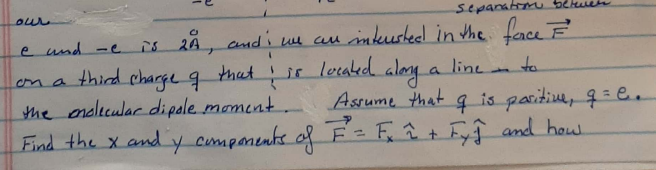 -e
our separation between
e and -e is 2Å, and we are interested in the force F⃗
on a third charge q that is located along a line to
the molecular dipole moment. Assume that q is positive, q = e.
Find the x and y components of F⃗ = Fₓ î + Fᵧ ĵ and how